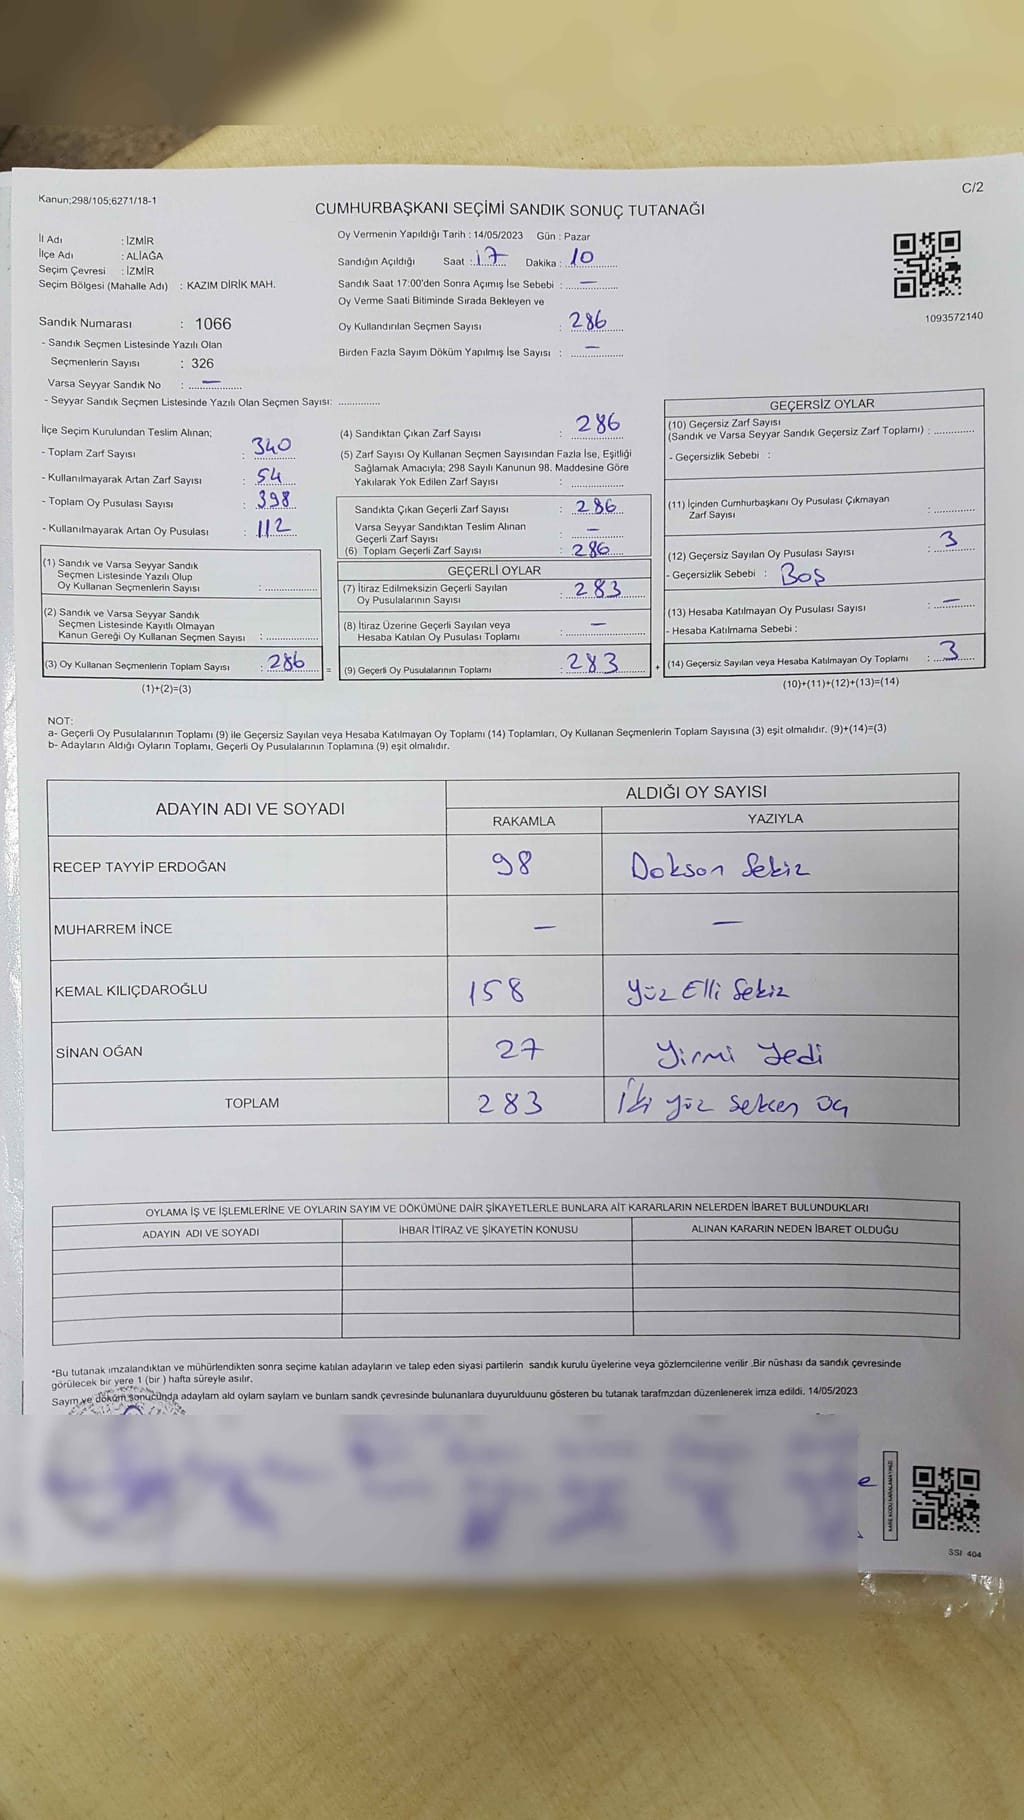 Kanun;298/105;6271/18-1
C/2
CUMHURBAŞKANI SEÇİMİ SANDIK SONUÇ TUTANAĞI
İl Adı : İZMİR
İlçe Adı : ALİAĞA
Seçim Çevresi : İZMİR
Seçim Bölgesi (Mahalle Adı) : KAZIM DİRİK MAH.
Sandık Numarası : 1066
- Sandık Seçmen Listesinde Yazılı Olan
Seçmenlerin Sayısı : 326
Varsa Seyyar Sandık No : —
- Seyyar Sandık Seçmen Listesinde Yazılı Olan Seçmen Sayısı: ..............
Oy Vermenin Yapıldığı Tarih : 14/05/2023 Gün : Pazar
Sandığın Açıldığı Saat : 17 Dakika : 10
Sandık Saat 17:00'den Sonra Açımış İse Sebebi : —
Oy Verme Saati Bitiminde Sırada Bekleyen ve
Oy Kullandırılan Seçmen Sayısı : 286
Birden Fazla Sayım Döküm Yapılmış İse Sayısı : —
1093572140
İlçe Seçim Kurulundan Teslim Alınan;
- Toplam Zarf Sayısı : 340
- Kullanılmayarak Artan Zarf Sayısı : 54
- Toplam Oy Pusulası Sayısı : 398
- Kullanılmayarak Artan Oy Pusulası : 112
(1) Sandık ve Varsa Seyyar Sandık
Seçmen Listesinde Yazılı Olup
Oy Kullanan Seçmenlerin Sayısı : ..............
(2) Sandık ve Varsa Seyyar Sandık
Seçmen Listesinde Kayıtlı Olmayan
Kanun Gereği Oy Kullanan Seçmen Sayısı : ..............
(3) Oy Kullanan Seçmenlerin Toplam Sayısı : 286 =
(1)+(2)=(3)
(4) Sandıktan Çıkan Zarf Sayısı : 286
(5) Zarf Sayısı Oy Kullanan Seçmen Sayısından Fazla İse, Eşitliği
Sağlamak Amacıyla; 298 Sayılı Kanunun 98. Maddesine Göre
Yakılarak Yok Edilen Zarf Sayısı : ..............
Sandıkta Çıkan Geçerli Zarf Sayısı : 286
Varsa Seyyar Sandıktan Teslim Alınan
Geçerli Zarf Sayısı : —
(6) Toplam Geçerli Zarf Sayısı : 286
GEÇERLİ OYLAR
(7) İtiraz Edilmeksizin Geçerli Sayılan
Oy Pusulalarının Sayısı : 283
(8) İtiraz Üzerine Geçerli Sayılan veya
Hesaba Katılan Oy Pusulası Toplamı : —
(9) Geçerli Oy Pusulalarının Toplamı : 283 +
GEÇERSİZ OYLAR
(10) Geçersiz Zarf Sayısı
(Sandık ve Varsa Seyyar Sandık Geçersiz Zarf Toplamı) : ..............
- Geçersizlik Sebebi :
(11) İçinden Cumhurbaşkanı Oy Pusulası Çıkmayan
Zarf Sayısı : ..............
(12) Geçersiz Sayılan Oy Pusulası Sayısı : 3
- Geçersizlik Sebebi : Boş
(13) Hesaba Katılmayan Oy Pusulası Sayısı : —
- Hesaba Katılmama Sebebi :
(14) Geçersiz Sayılan veya Hesaba Katılmayan Oy Toplamı : 3
(10)+(11)+(12)+(13)=(14)
NOT:
a- Geçerli Oy Pusulalarının Toplamı (9) ile Geçersiz Sayılan veya Hesaba Katılmayan Oy Toplamı (14) Toplamları, Oy Kullanan Seçmenlerin Toplam Sayısına (3) eşit olmalıdır. (9)+(14)=(3)
b- Adayların Aldığı Oyların Toplamı, Geçerli Oy Pusulalarının Toplamına (9) eşit olmalıdır.
ADAYIN ADI VE SOYADI ALDIĞI OY SAYISI
RAKAMLA YAZIYLA
RECEP TAYYİP ERDOĞAN 98 Dokson Sekiz
MUHARREM İNCE — —
KEMAL KILIÇDAROĞLU 158 Yüz Elli Sekiz
SİNAN OĞAN 27 Yirmi Yedi
TOPLAM 283 İki yüz seksen üç
OYLAMA İŞ VE İŞLEMLERİNE VE OYLARIN SAYIM VE DÖKÜMÜNE DAİR ŞİKAYETLERLE BUNLARA AİT KARARLARIN NELERDEN İBARET BULUNDUKLARI
ADAYIN ADI VE SOYADI İHBAR İTİRAZ VE ŞİKAYETİN KONUSU ALINAN KARARIN NEDEN İBARET OLDUĞU
*Bu tutanak imzalandıktan ve mühürlendikten sonra seçime katılan adayların ve talep eden siyasi partilerin sandık kurulu üyelerine veya gözlemcilerine verilir .Bir nüshası da sandık çevresinde
görülecek bir yere 1 (bir ) hafta süreyle asılır.
Saym ve döküm sonucunda adaylarn ald oylarn saylarn ve bunlarn sandk çevresinde bulunanlara duyurulduunu gösteren bu tutanak tarafmzdan düzenlenerek imza edildi. 14/05/2023
SSI 404